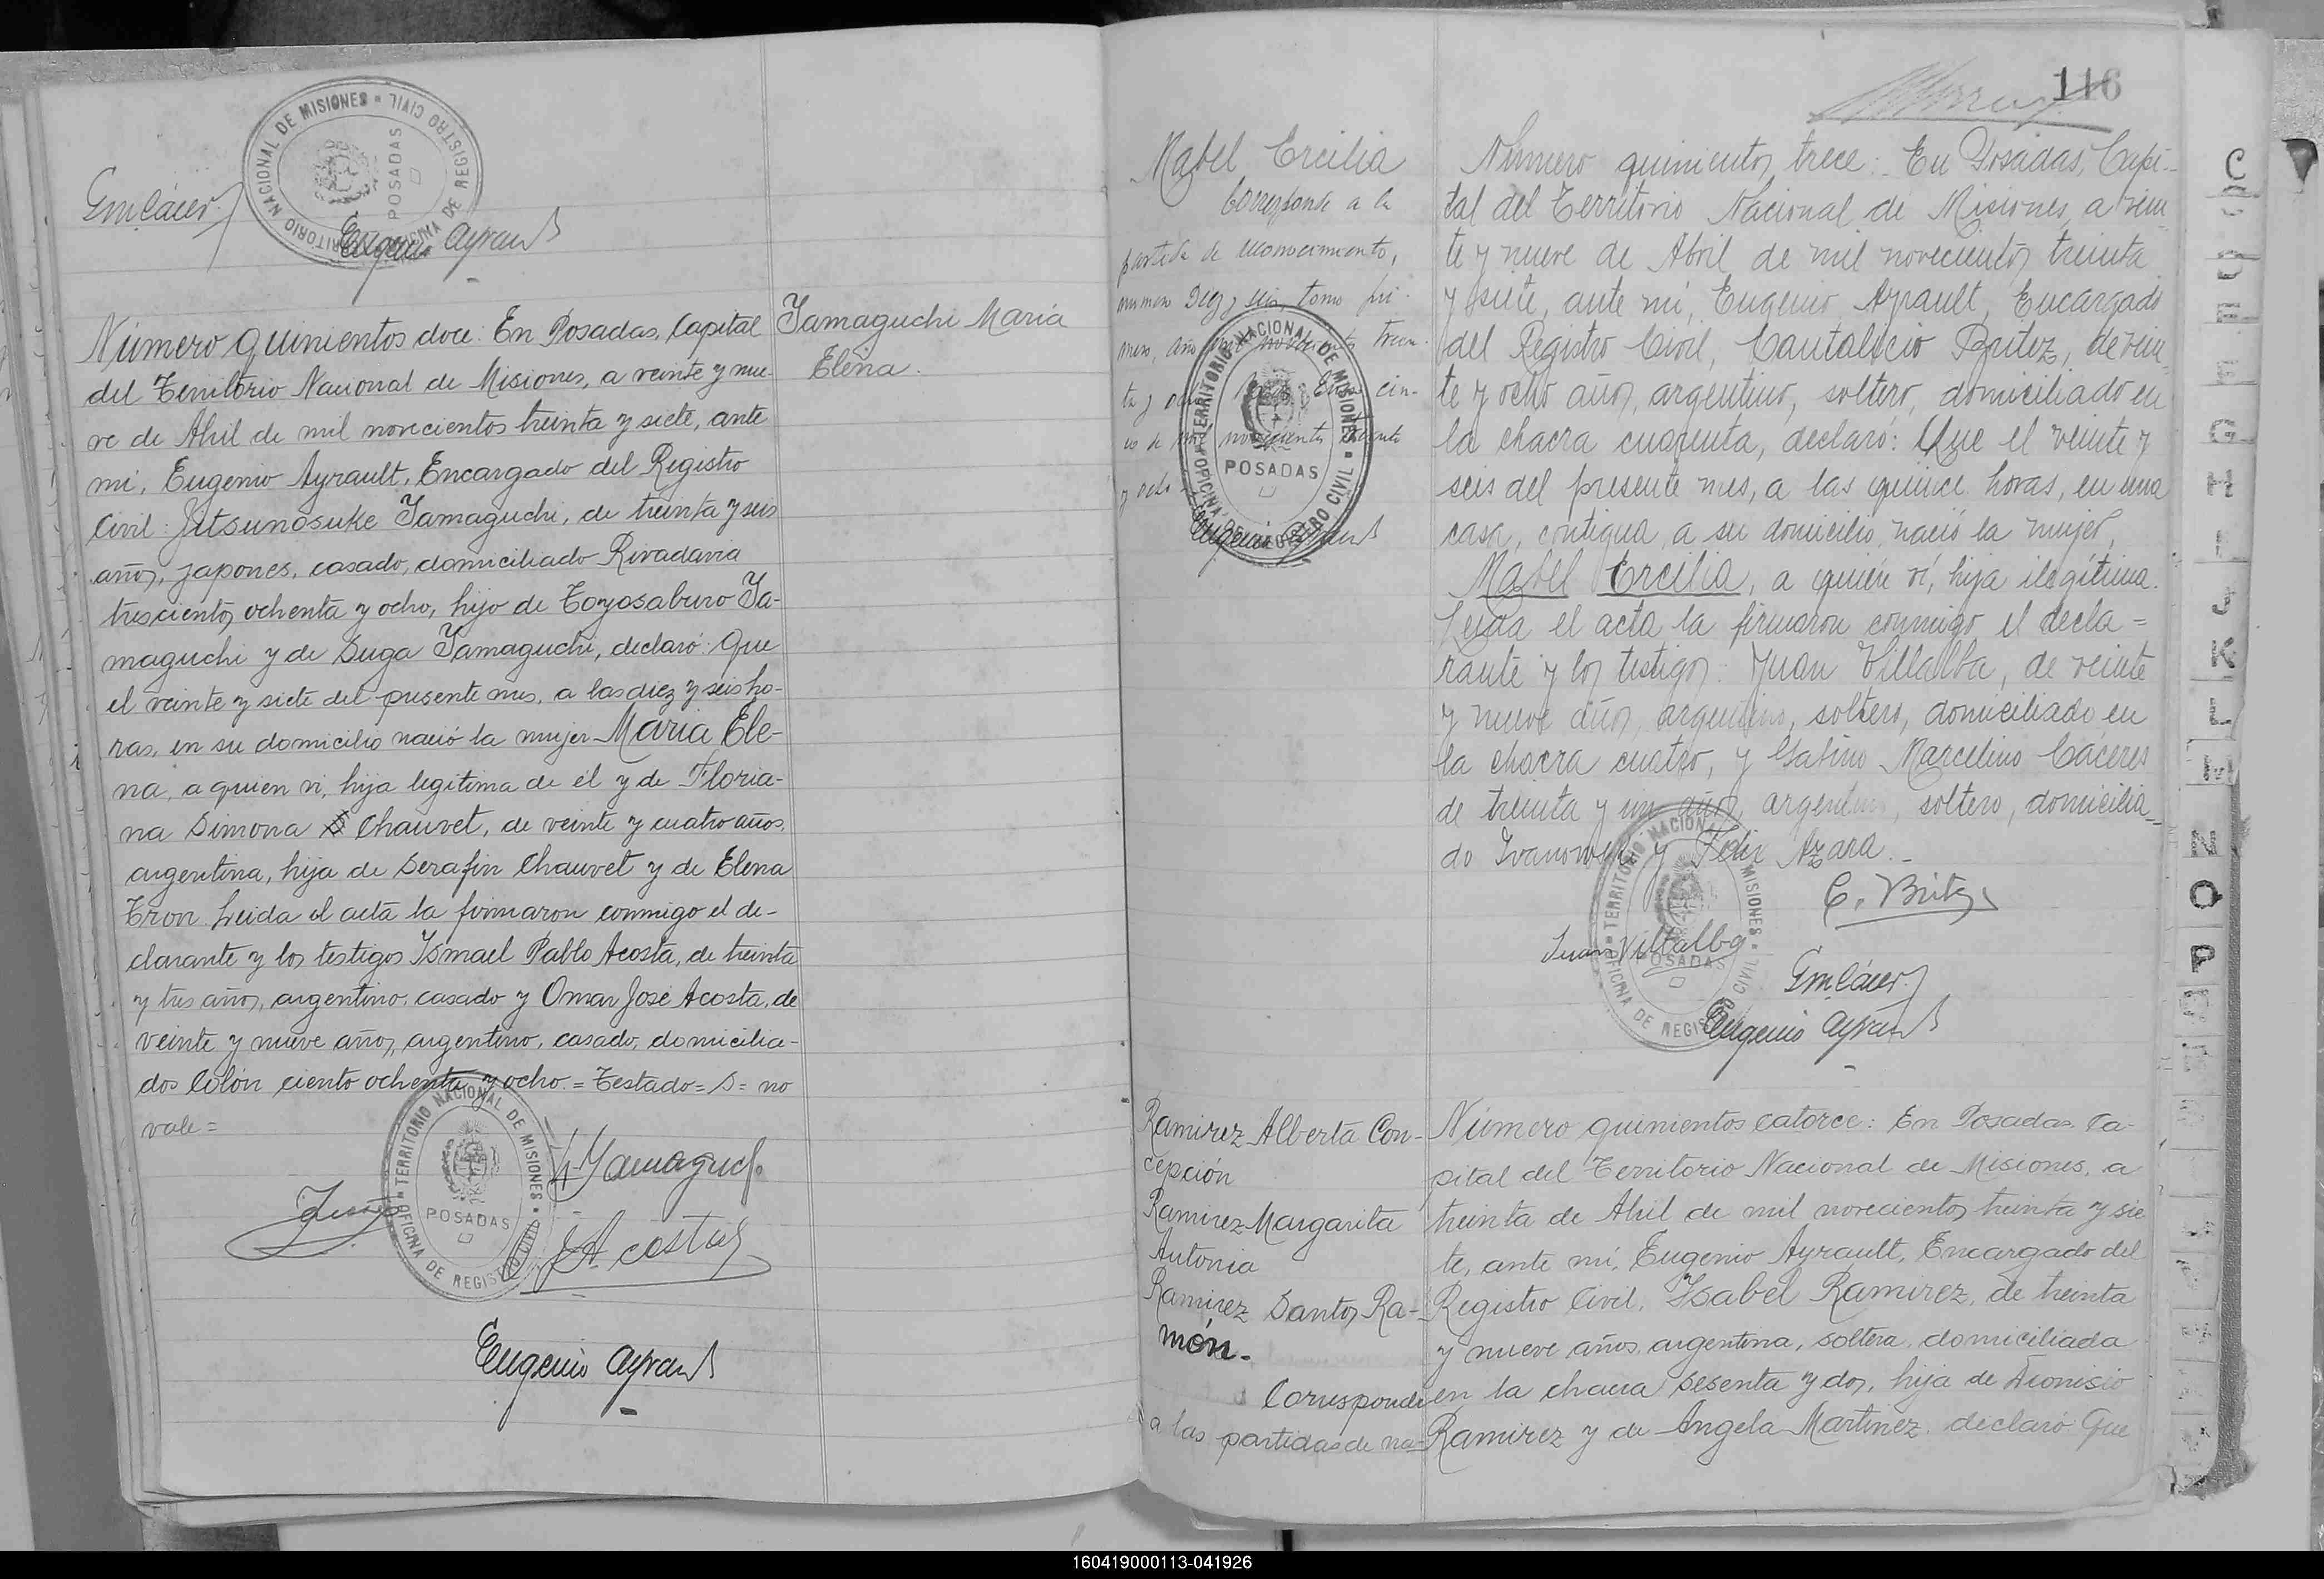 TERRITORIO NACIONAL DE MISIONES
OFICINA DE REGISTRO CIVIL
POSADAS
Gmcácer
Eugenio Ayrault
Número quinientos doce: En Posadas, Capital
del Territorio Nacional de Misiones, a veinte y nue-
ve de Abril de mil novecientos treinta y siete, ante
mi, Eugenio Ayrault, Encargado del Registro
Civil: Jitsunosuke Yamaguchi, de treinta y seis
años, japones, casado, domiciliado Rivadavia
trescientos ochenta y ocho, hijo de Toyosaburo Ya-
maguchi y de Suga Yamaguchi, declaró: Que
el veinte y siete del presente mes, a las diez y seis ho-
ras, en su domicilio nació la mujer Maria Ele-
na, a quien vi, hija legitima de él y de Floria-
na Simona S Chauvet, de veinte y cuatro años,
argentina, hija de Serafin Chauvet y de Elena
Tron. Leida el acta la firmaron conmigo el de-
clarante y los testigos Ismael Pablo Acosta, de treinta
y tres años, argentino, casado y Omar José Acosta, de
veinte y nueve años, argentino, casado, domicilia-
dos Colón ciento ochenta y ocho.= Testado= S= no
vale=
Yamaguchi María
Elena.
TERRITORIO NACIONAL DE MISIONES
OFICINA DE REGISTRO CIVIL
POSADAS
Yamaguch
Acosta
Eugenio Ayrault
116
Mabel Ercilia
Corresponde a la
partida de reconocimiento,
numero Diez y seis, tomo pri-
mero, año mil novecientos trein-
ta y ocho
Enero cin-
co de mil novecientos treinta
y ocho
TERRITORIO NACIONAL DE MISIONES
OFICINA DE REGISTRO CIVIL
POSADAS
Eugenio Ayrault
Número quinientos trece: En Posadas, Capi-
tal del Territorio Nacional de Misiones, a vein
te y nueve de Abril de mil novecientos treinta
y siete, ante mi, Eugenio Ayrault, Encargado
del Registro Civil, Cantalicio Britez, de vein
te y ocho años, argentino, soltero, domiciliado en
la chacra cuarenta, declaró: Que el veinte y
seis del presente mes, a las quince horas, en una
casa, contigua a su domicilio, nació la mujer,
Mabel Ercilia, a quien ví, hija ilegítima.
Leida el acta la firmaron conmigo el decla=
rante y los testigos: Juan Villalba, de veinte
y nueve años, argentino, soltero, domiciliado en
la chacra cuatro, y Gabino Marcelino Cáceres
de treinta y un años, argentino, soltero, domicilia-
do Ivanowski y Felix Azara.-
C. Britez
Juan Villalba
TERRITORIO NACIONAL DE MISIONES
OFICINA DE REGISTRO CIVIL
POSADAS
Gmcácer
Eugenio Ayrault
Ramirez Alberta Con-
cepción
Ramirez Margarita
Antonia
Ramirez Santos Ra-
món.
Corresponde
a las partidas de na-
Número quinientos catorce: En Posadas Ca-
pital del Territorio Nacional de Misiones, a
treinta de Abril de mil novecientos treinta y sie
te, ante mí, Eugenio Ayrault, Encargado del
Registro Civil, Isabel Ramirez, de treinta
y nueve años, argentina, soltera, domiciliada
en la chacra sesenta y dos, hija de Dionisio
Ramirez y de Angela Martinez, declaró: Que
C
D
E
F
G
H
I
J
K
L
M
N
O
P
160419000113-041926